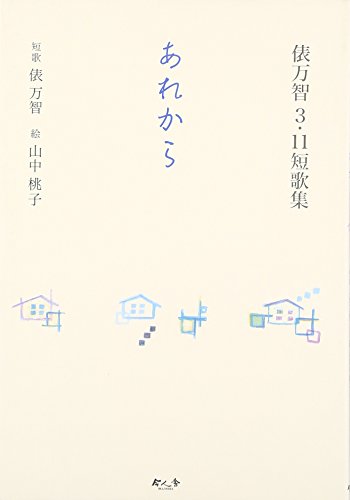 俵万智 3・11短歌集
あれから
短歌 俵万智 絵 山中桃子
今人舎